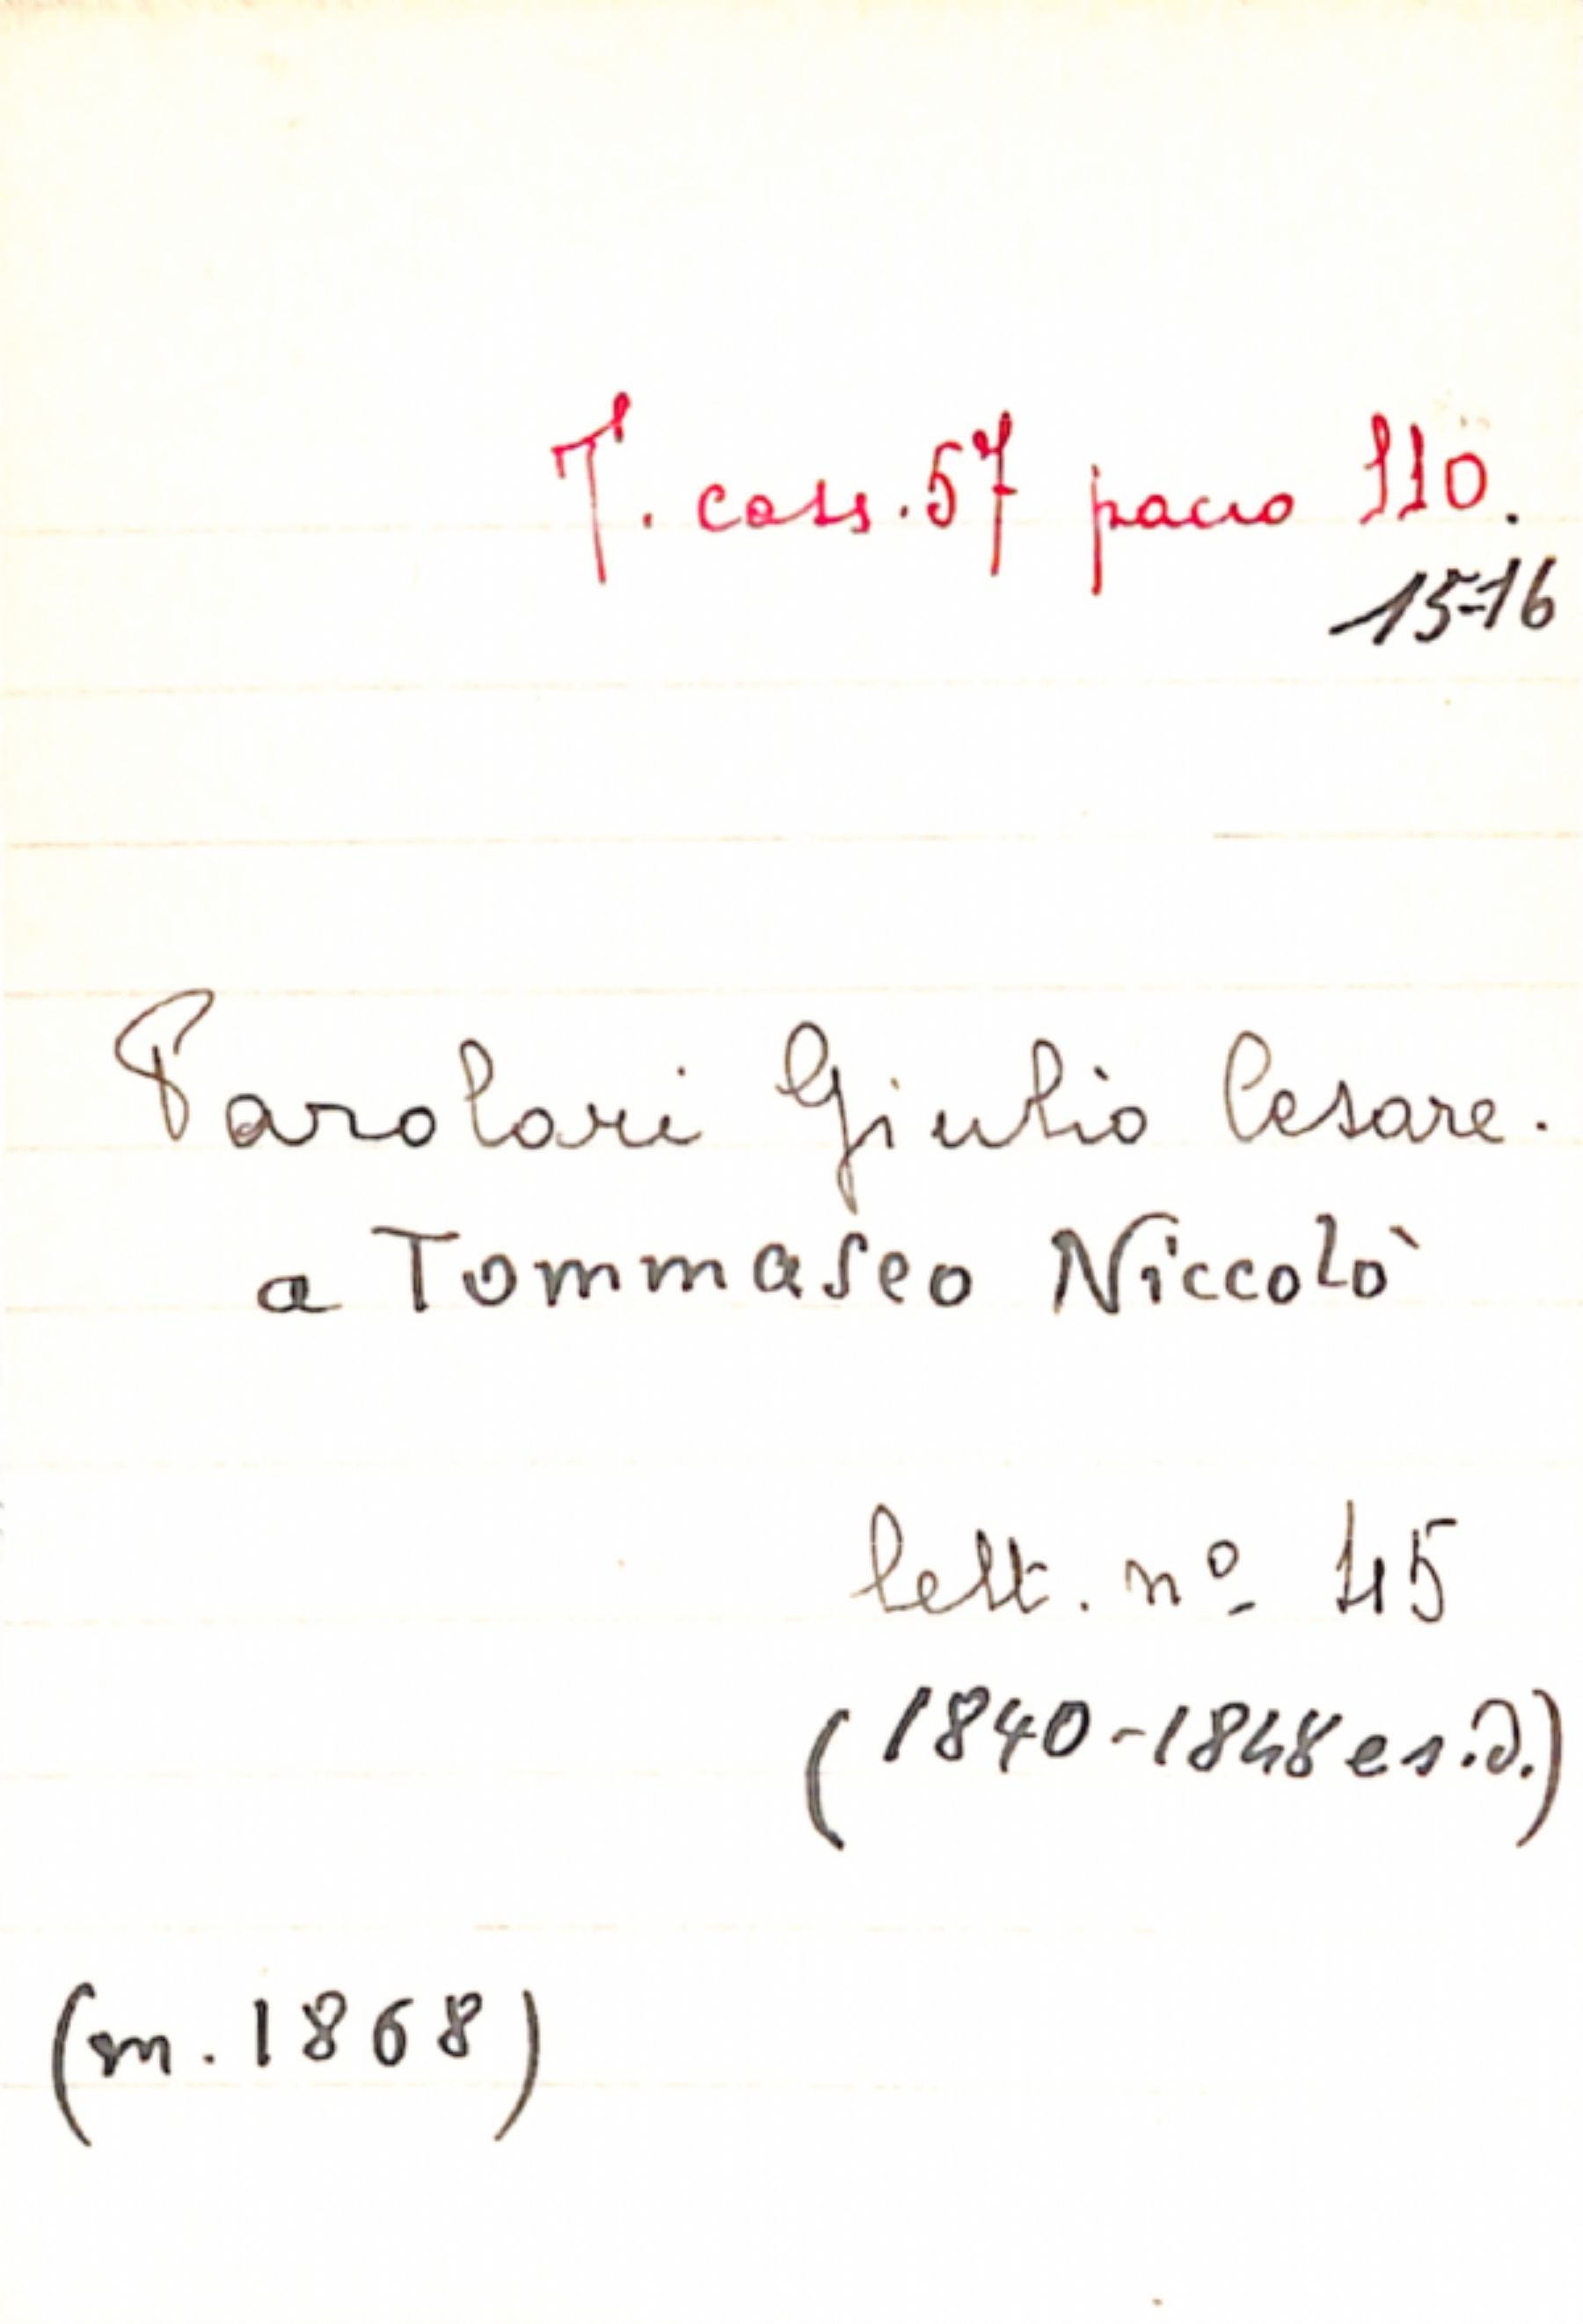 T. cass. 57 pacco 110.
15-16
Parolari Giulio Cesare.
a Tommaseo Niccolò
lett. nº 45
(1840-1848 e s.d.)
(m. 1868)